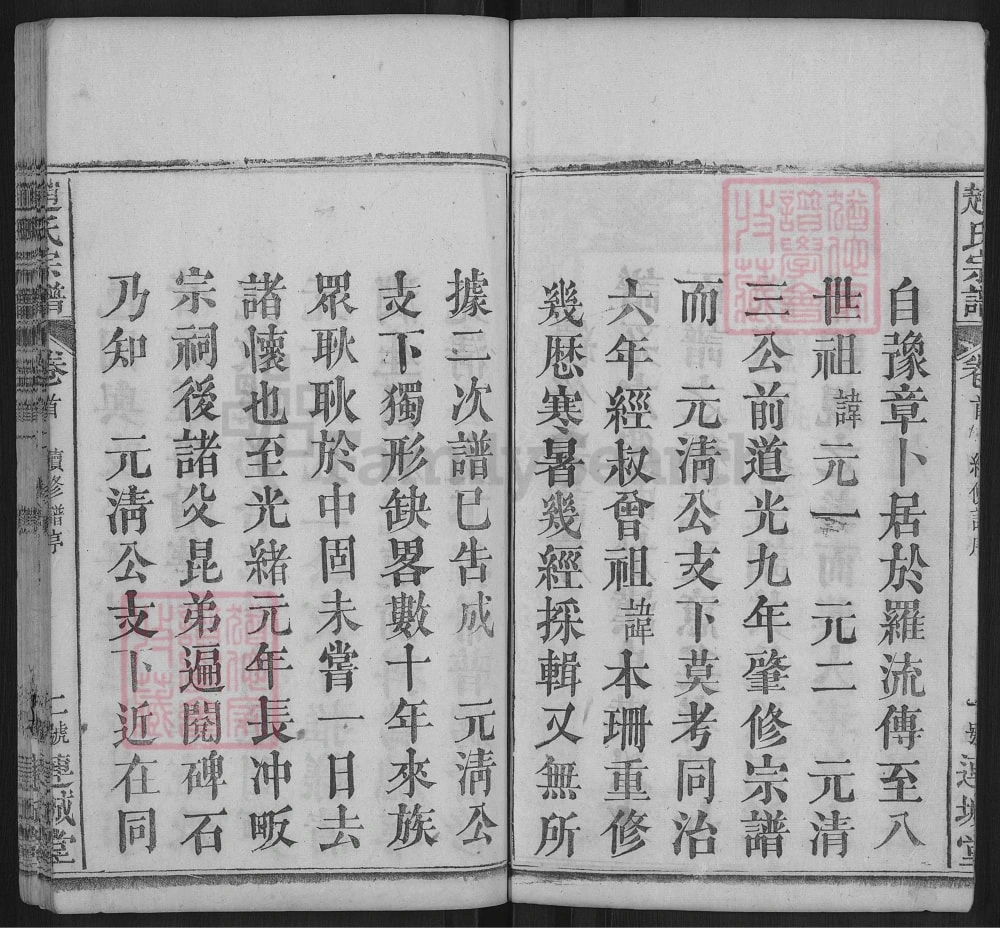 自豫章卜居於羅流傳至八
世祖諱元一 元二 元清
三公前道光九年肇修宗譜
而 元清公支下莫考同治
六年經叔曾祖諱本珊重修
幾歷寒暑幾經採輯又無所
據二次譜已告成 元清公
支下獨形缺畧數十年來族
眾耿耿於中固未嘗一日去
諸懷也至光緒元年長冲畈
宗祠後諸父昆弟遍閱碑石
乃知 元清公支下近在同
趙氏宗譜 卷首 續修譜序 二號 連城堂
FamilySearch